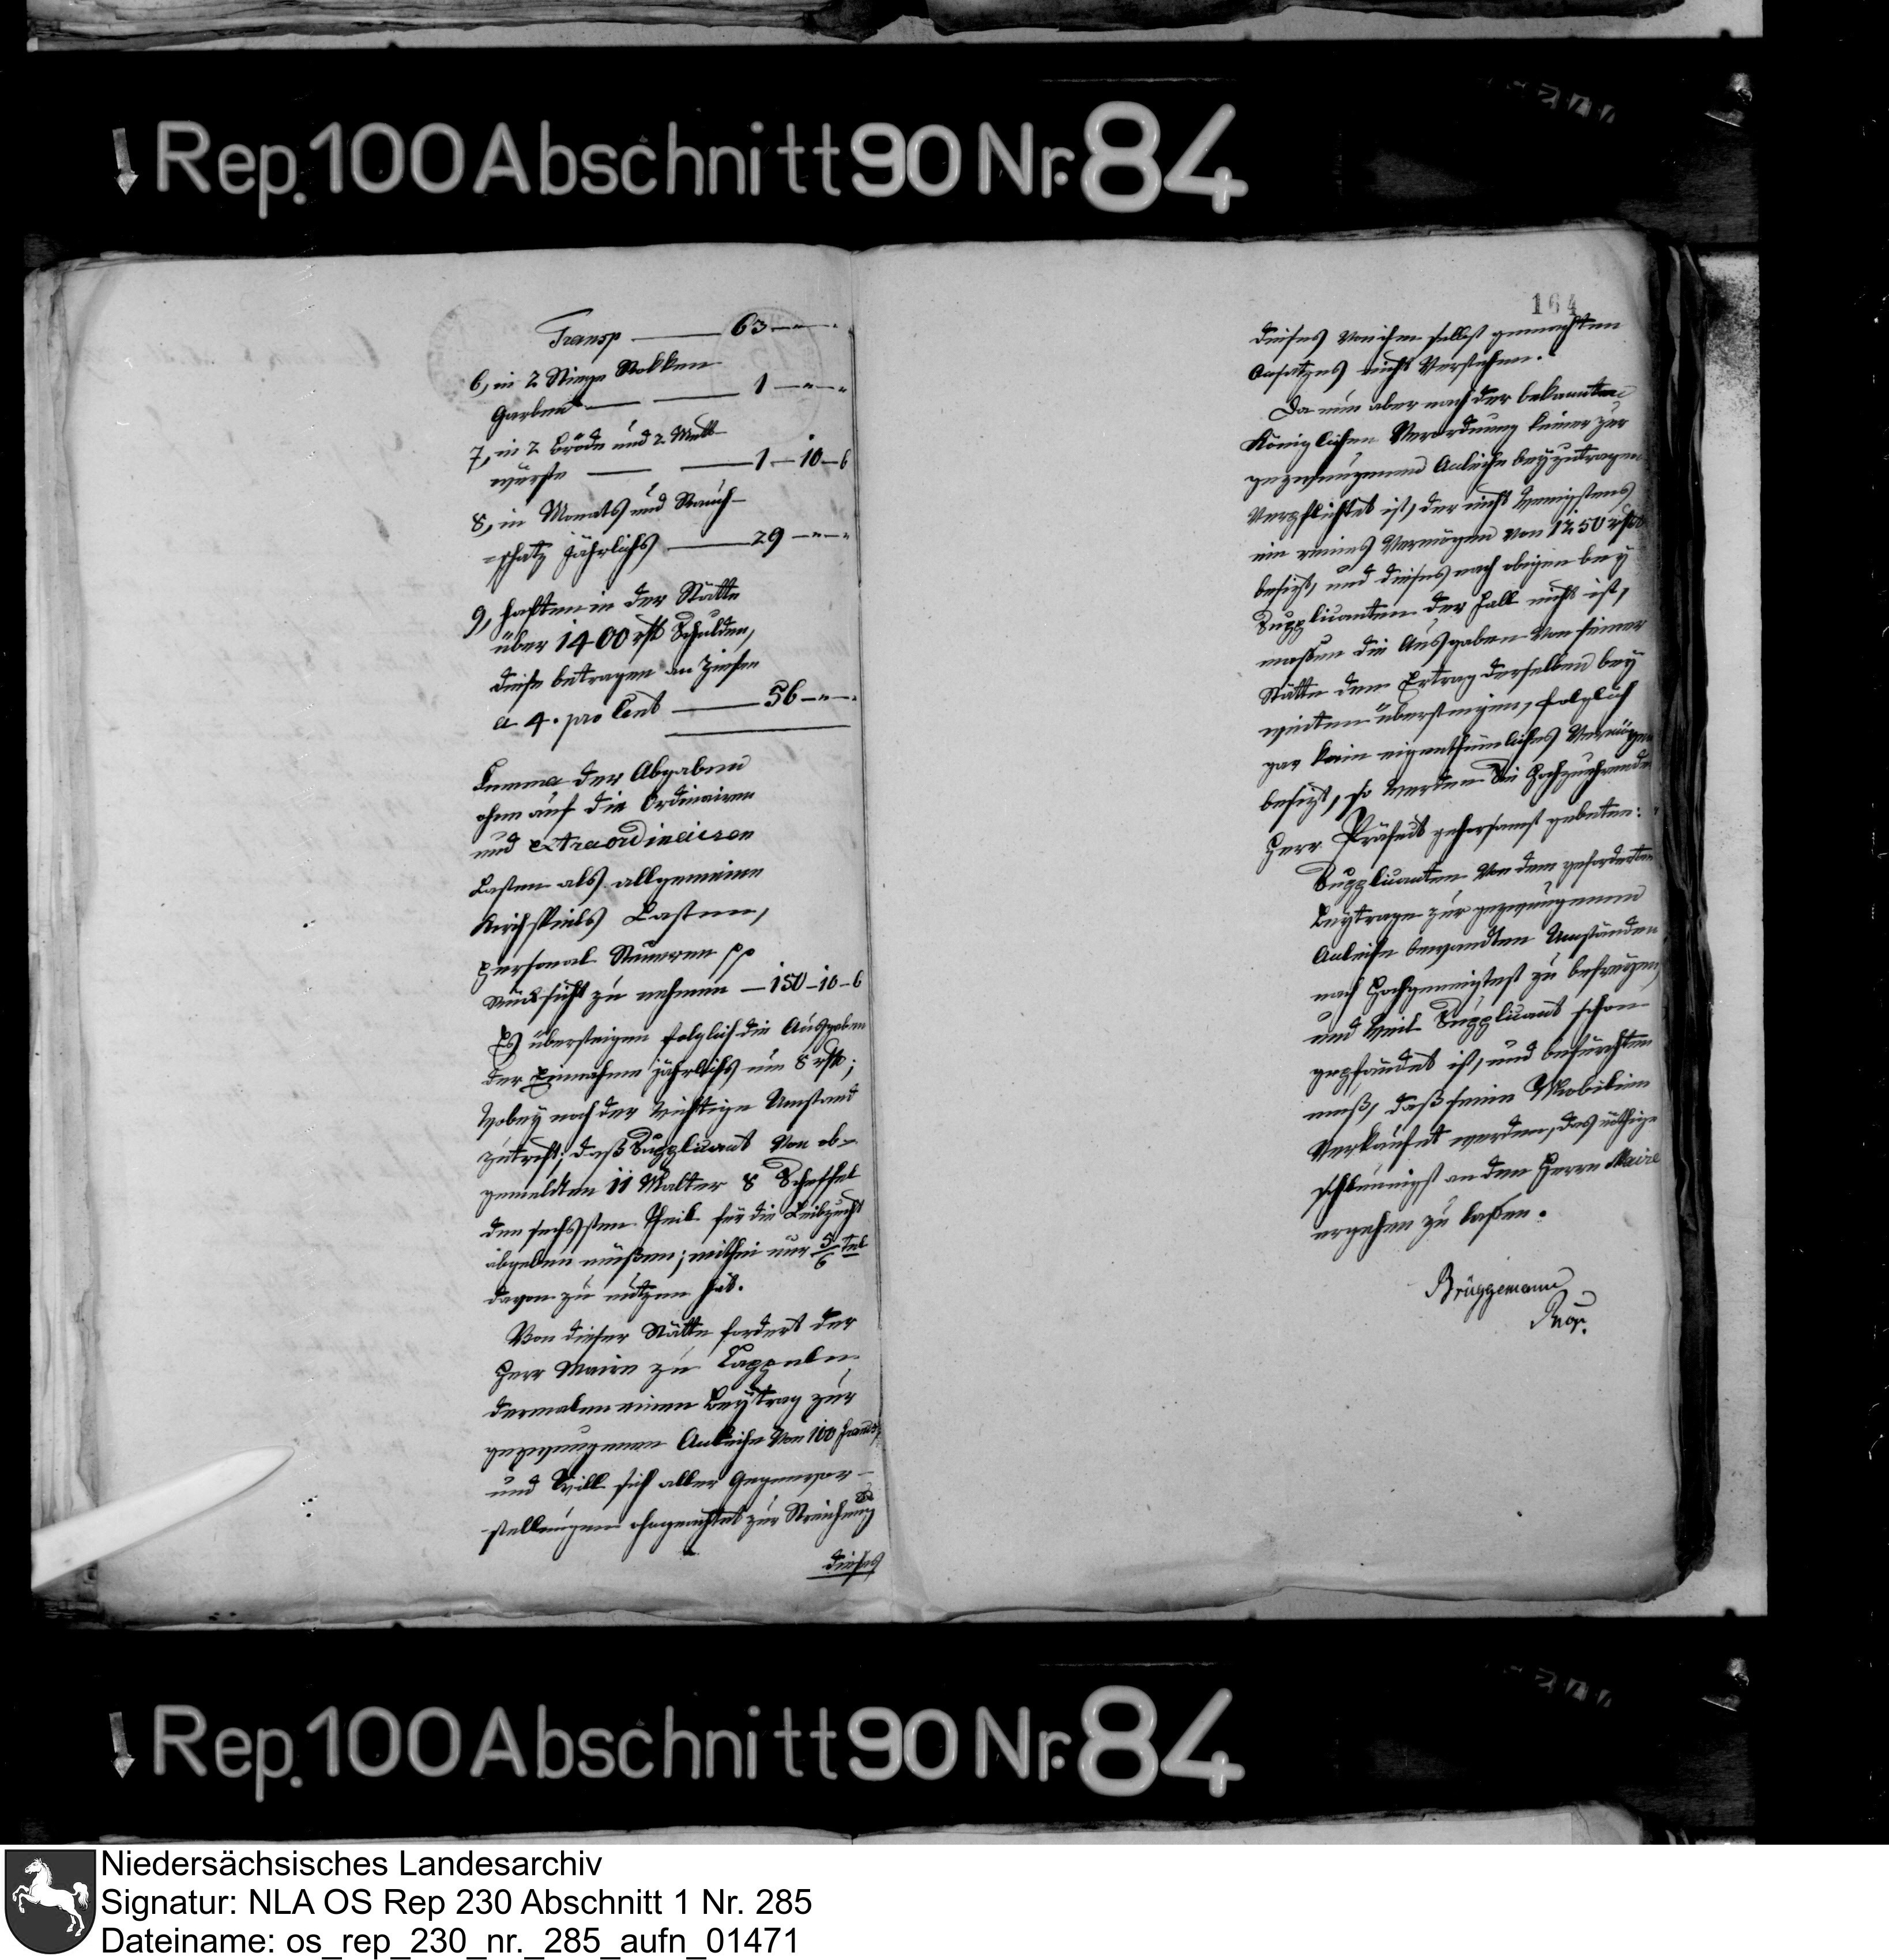 Rep. 100 Abschnitt 90 Nr. 84
Transp — 63 — " — "
6, in 2 Stiege Rokken
Garben — — 1 — " — "
7, in 2 Bröde und 2 Mett-
würste — — 1 — 10 — 6
8, in Monats und Rauch-
=schatz jährlichs — 29 — " — "
9, haften in der Stätte
über 1400 rthl Schulden,
diese betragen an Zinsen
a 4. pro Cent — 56 — " — "
Summa der Abgaben
ohne auf die Ordinairen
und extraordinairen
Lasten als allgemeine
Kirchspiels Lasten,
personal Steueren pp
Rücksicht zu nehmen — 150 - 10 - 6
Es übersteigen folglich die Ausgaben
der Einnahme jährlichs um 8 rthl;
wobey noch der wichtige Umstand
zutrift; daß Supplicant von ob-
gemeldten 11 Malter 8 Scheffel
den sechssten Theil für die Leibzucht
abgeben müßen; mithin nur 5/6 tel
davon zu nutzen hat.
Von dieser Stätte fordert der
Herr Maire zu Cappelen
dermalen einen Beytrag zur
gezwungenen Anleihe von 100 Franks,
und will sich aller Gegenvor-
stellungen ohngeachtet zur Streichung
dieses
164
dieses von ihm selbst gemachten
Ansatzes nicht verstehen.
Da nun aber nach der bekannten
Königlichen Verordnung keiner zur
gezwungenen Anleihe beyzutragen
verpflichtet ist, der nicht wenigstens
ein reines Vermögen von 1250 rthl
besizt, und dieses nach obigen bey
Supplicanten der Fall nicht ist,
maßen die Ausgaben von seiner
Stätte dem Ertrag derselben bey
weiten übersteigen, folglich
gar kein eigenthümliches Vermögen
besizt, so werden Sie Hochzuehrender
Herr Präfect gehorsamst gebeten:
Supplicanten von dem geforderten
Beytrage zur gezwungenen
Anleihe bewandten Umständen
nach Hochgeneigtest zu befreyen,
und weil Supplicant schon
gepfändet ist, und befürchten
muß, daß seine Mobilien
verkaufet werden, das nöthige
schleunigst an den Herrn Maire
ergehen zu laßen.
Brüggemann
Rep. 100 Abschnitt 90 Nr. 84
Niedersächsisches Landesarchiv
Signatur: NLA OS Rep 230 Abschnitt 1 Nr. 285
Dateiname: os_rep_230_nr._285_aufn_01471